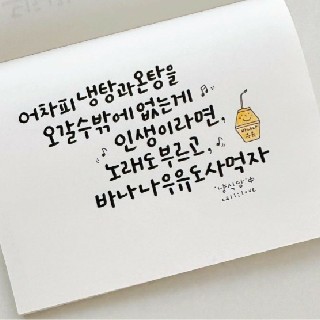 어차피 냉탕과 온탕을
오갈 수밖에 없는 게
인생이라면,
노래도 부르고,
바나나 우유도 사먹자
"냉신탕" 中